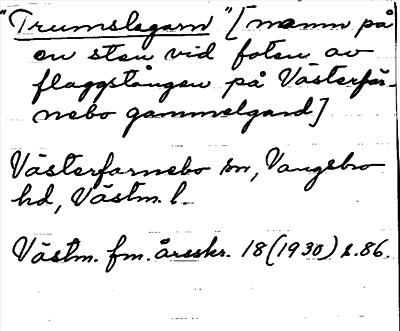 "Trumslagarn" [namn på
en sten vid foten av
flaggstången på Västerfär-
nebo gammelgard]
Västerfarnebo sn, Vangsbro
hd, Västm. l.
Västm. fm. årsskr. 18 (1930) s. 86.